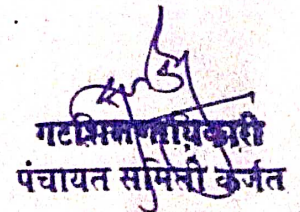 गटशिक्षणाधिकारी
पंचायत समिती कर्जत